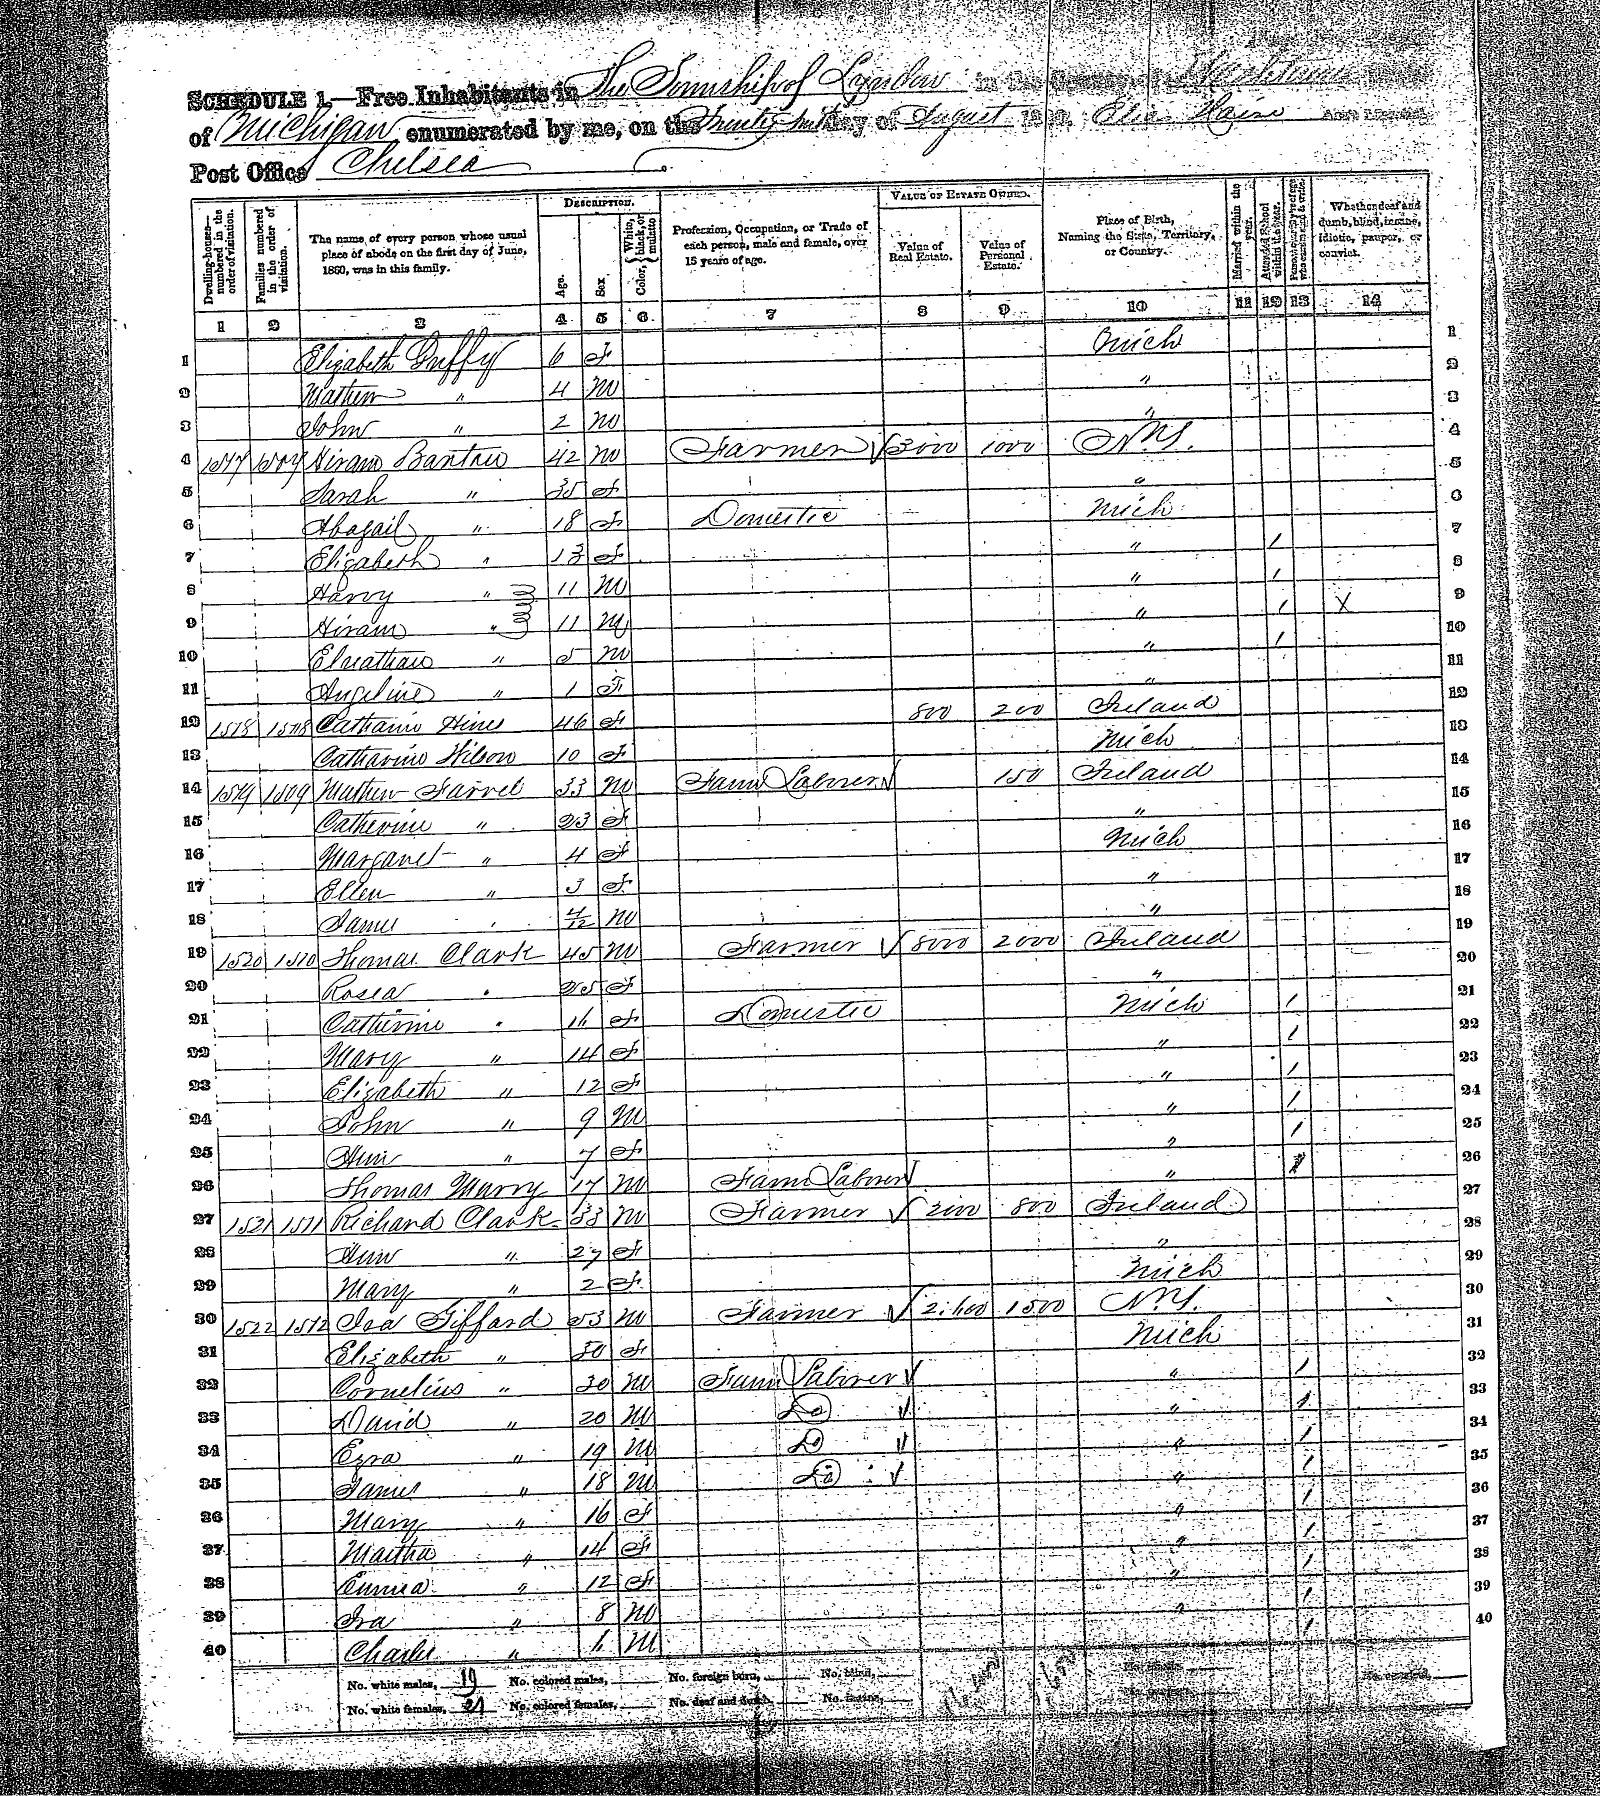 SCHEDULE 1.—Free Inhabitants in The Township of Lyndon in the County of Washtenaw
of Michigan enumerated by me, on the day of August 1860. Ass't Marshal.
Post Office Chelsea
Dwelling-houses—numbered in the order of visitation.
Families numbered in the order of visitation.
The name of every person whose usual place of abode on the first day of June, 1860, was in this family.
DESCRIPTION.
Age.
Sex
Color, White, black, or mulatto
Profession, Occupation, or Trade of each person, male and female, over 15 years of age.
VALUE OF ESTATE OWNED.
Value of Real Estate.
Value of Personal Estate.
Place of Birth, Naming the State, Territory, or Country.
Married within the year.
Attended School within the year.
Whether deaf and dumb, blind, insane, idiotic, pauper, or convict.
1 2 3 4 5 6 7 8 9 10 11 12 13 14
1 Elizabeth Guffy 6 f Mich 1
2 Mathew " 4 m " 2
3 John " 2 m " 3
4 1517 1507 Hiram 42 m Farmer √ 3000 1000 N.Y. 4
5 Sarah " 35 f " 5
6 Abagail " 18 f Domestic Mich 6
7 Elizabeth " 13 f " / 7
8 Harvy " 11 m " / 8
9 Hiram " 11 m " / X 9
10 Elnathan " 5 m " / 10
11 Angeline " 1 f " 11
12 1518 1508 Catharine Hines 46 f 800 200 Ireland 12
13 Catharine Wilson 10 f Mich 13
14 1519 1509 Mathew Farrel 33 m Farm Laborer √ 150 Ireland 14
15 Catherine " 23 f " 15
16 Margaret " 4 f Mich 16
17 Ellen " 3 f " 17
18 James " 4/12 m " 18
19 1520 1510 Thomas Clark 45 m Farmer √ 8000 2000 Ireland 19
20 Rosea " f " 20
21 Catherine " 16 f Domestic Mich / 21
22 Mary " 14 f " / 22
23 Elizabeth " 12 f " / 23
24 John " 9 m " / 24
25 Ann " 7 f " / 25
26 Thomas Marry 17 m Farm Laborer √ " 26
27 1521 1511 Richard Clark 33 m Farmer √ 2000 800 Ireland 27
28 Ann " 27 f " 28
29 Mary " 2 f Mich 29
30 1522 1512 Ira Giffard 53 m Farmer √ 1500 N.Y. 30
31 Elizabeth " f Mich 31
32 Cornelius " m Farm Laborer √ " / 32
33 David " 20 m Do √ " / 33
34 Ezra " 19 m Do √ " / 34
35 James " 18 m Do √ " / 35
36 Mary " 16 f " / 36
37 Martha " 14 f " / 37
38 Emma " 12 f " / 38
39 Ira " 8 m " / 39
40 Charles " 6 m / 40
No. white males, 19 No. colored males, No. foreign born, No. blind,
No. white females, 21 No. colored females, No. deaf and dumb, No. insane,